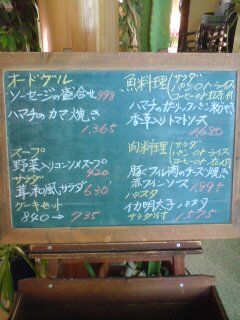 オードブル
ソーセージの盛合せ 998
ハマチのカマ焼き
1,365
スープ
野菜入りコンソメスープ
420
サラダ
茸和風サラダ
630
ケーキセット
840→735
魚料理(サラダ
パンorライス
コーヒーor紅茶付
ハマチのガリックパン粉やき
香草入りトマトソース
1680
肉料理(サラダ
パンorライス
コーヒーor紅茶付
豚ヒフィル肉のチーズ焼き
赤ワインソース 1995
パスタ
イカ明太子パスタ
サラダ付 1,575